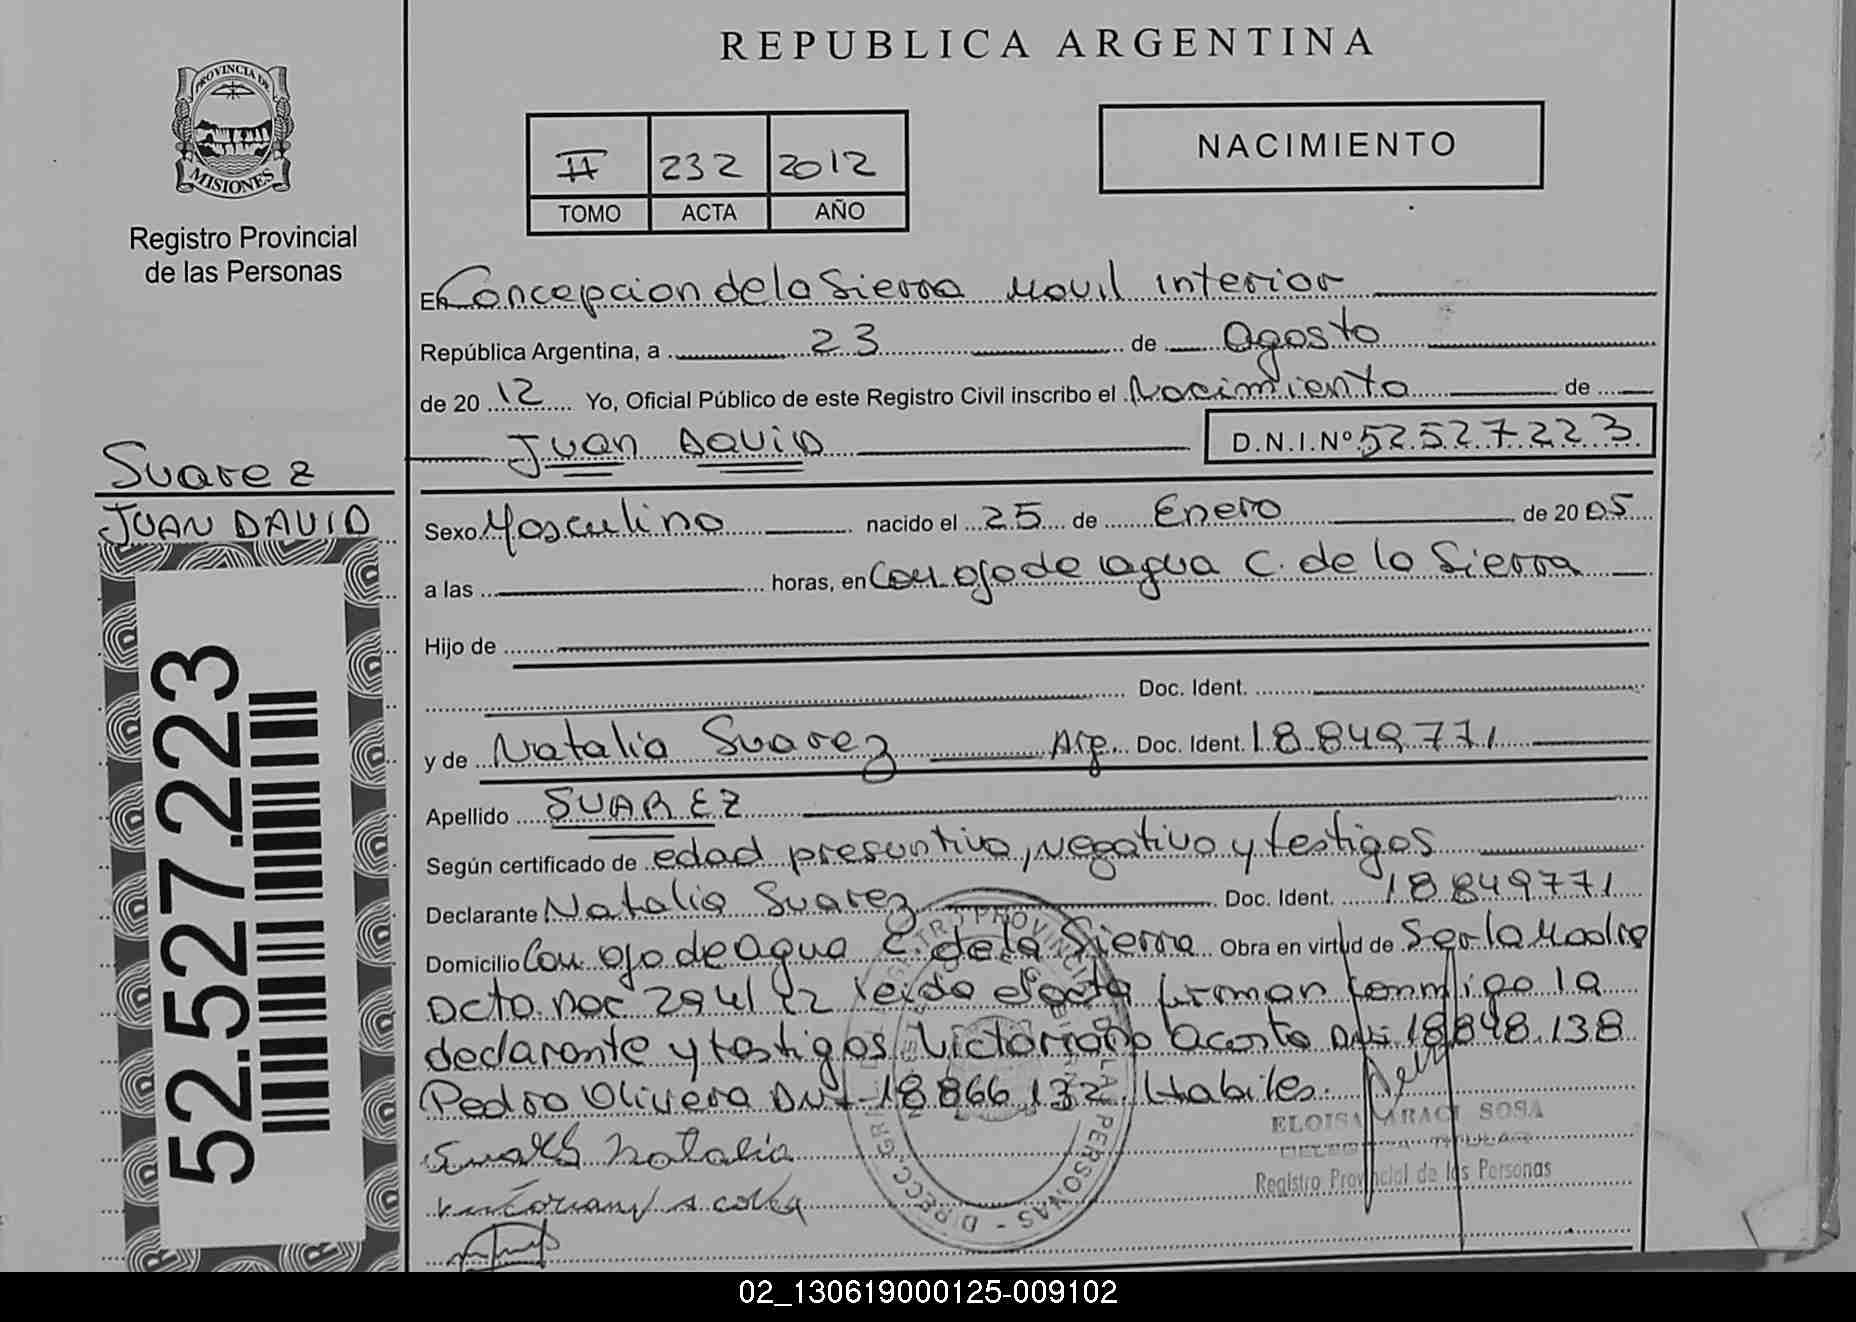 REPUBLICA ARGENTINA
PROVINCIA DE
MISIONES
Registro Provincial
de las Personas
II 232 2012
TOMO ACTA AÑO
NACIMIENTO
En Concepcion de la Sierra Movil interior
República Argentina, a 23 de Agosto
de 20 12 Yo, Oficial Público de este Registro Civil inscribo el Nacimiento de
Juan David D.N.I.Nº 52.527.223
Suarez
JUAN DAVID
Sexo Masculino nacido el 25 de Enero de 20 05
a las horas, en Com ojo de agua C. de la Sierra
Hijo de
Doc. Ident.
y de Natalia Suarez Arg. Doc. Ident. 18.849.771
Apellido SUAREZ
Según certificado de edad presuntiva, negativo y testigos
Declarante Natalia Suarez Doc. Ident. 18.849771
Domicilio Com ojo de Agua C. de la Sierra Obra en virtud de Ser la Madre
Dcto. Nac 294/12 leido el acta firman conmigo la
declarante y testigos Victoriano Acosta DNI 18.848.138
Pedro Olivera DNI 18866.132 Habiles.
Suarez Natalia
Victoriano Acosta
ELOISA ARACI SOSA
DELEGADA TITULAR
Registro Provincial de las Personas
52.527.223
02_130619000125-009102